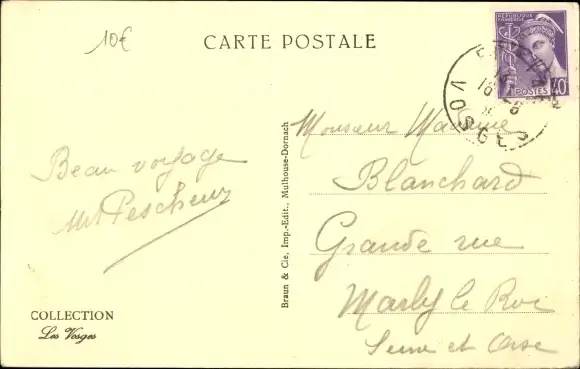 10€
CARTE POSTALE
REPUBLIQUE FRANÇAISE
POSTES 40
VOSGES
18
Monsieur Madame
Blanchard
Grande rue
Marly le Roi
Seine et Oise
Beau voyage
Pescheux
Braun & Cie, Imp.-Edit., Mulhouse-Dornach
COLLECTION
Les Vosges